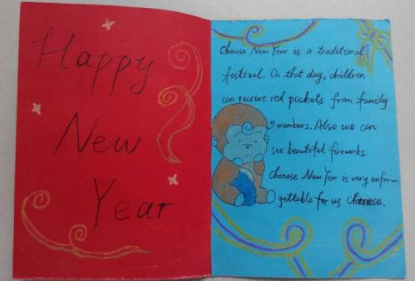 Happy
New
Year
Chinese New Year is a traditional
festival. On that day, children
can receive red pockets from family
members. Also we can
see beautiful fireworks
Chinese New Year is very unfor-
gettable for us Chinese.